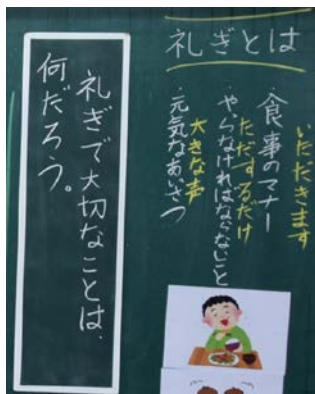 礼ぎとは
いただきます
・食事のマナー
ただするだけ
・やらなければならないこと
大きな声
・元気なあいさつ
礼ぎで大切なことは、
何だろう。